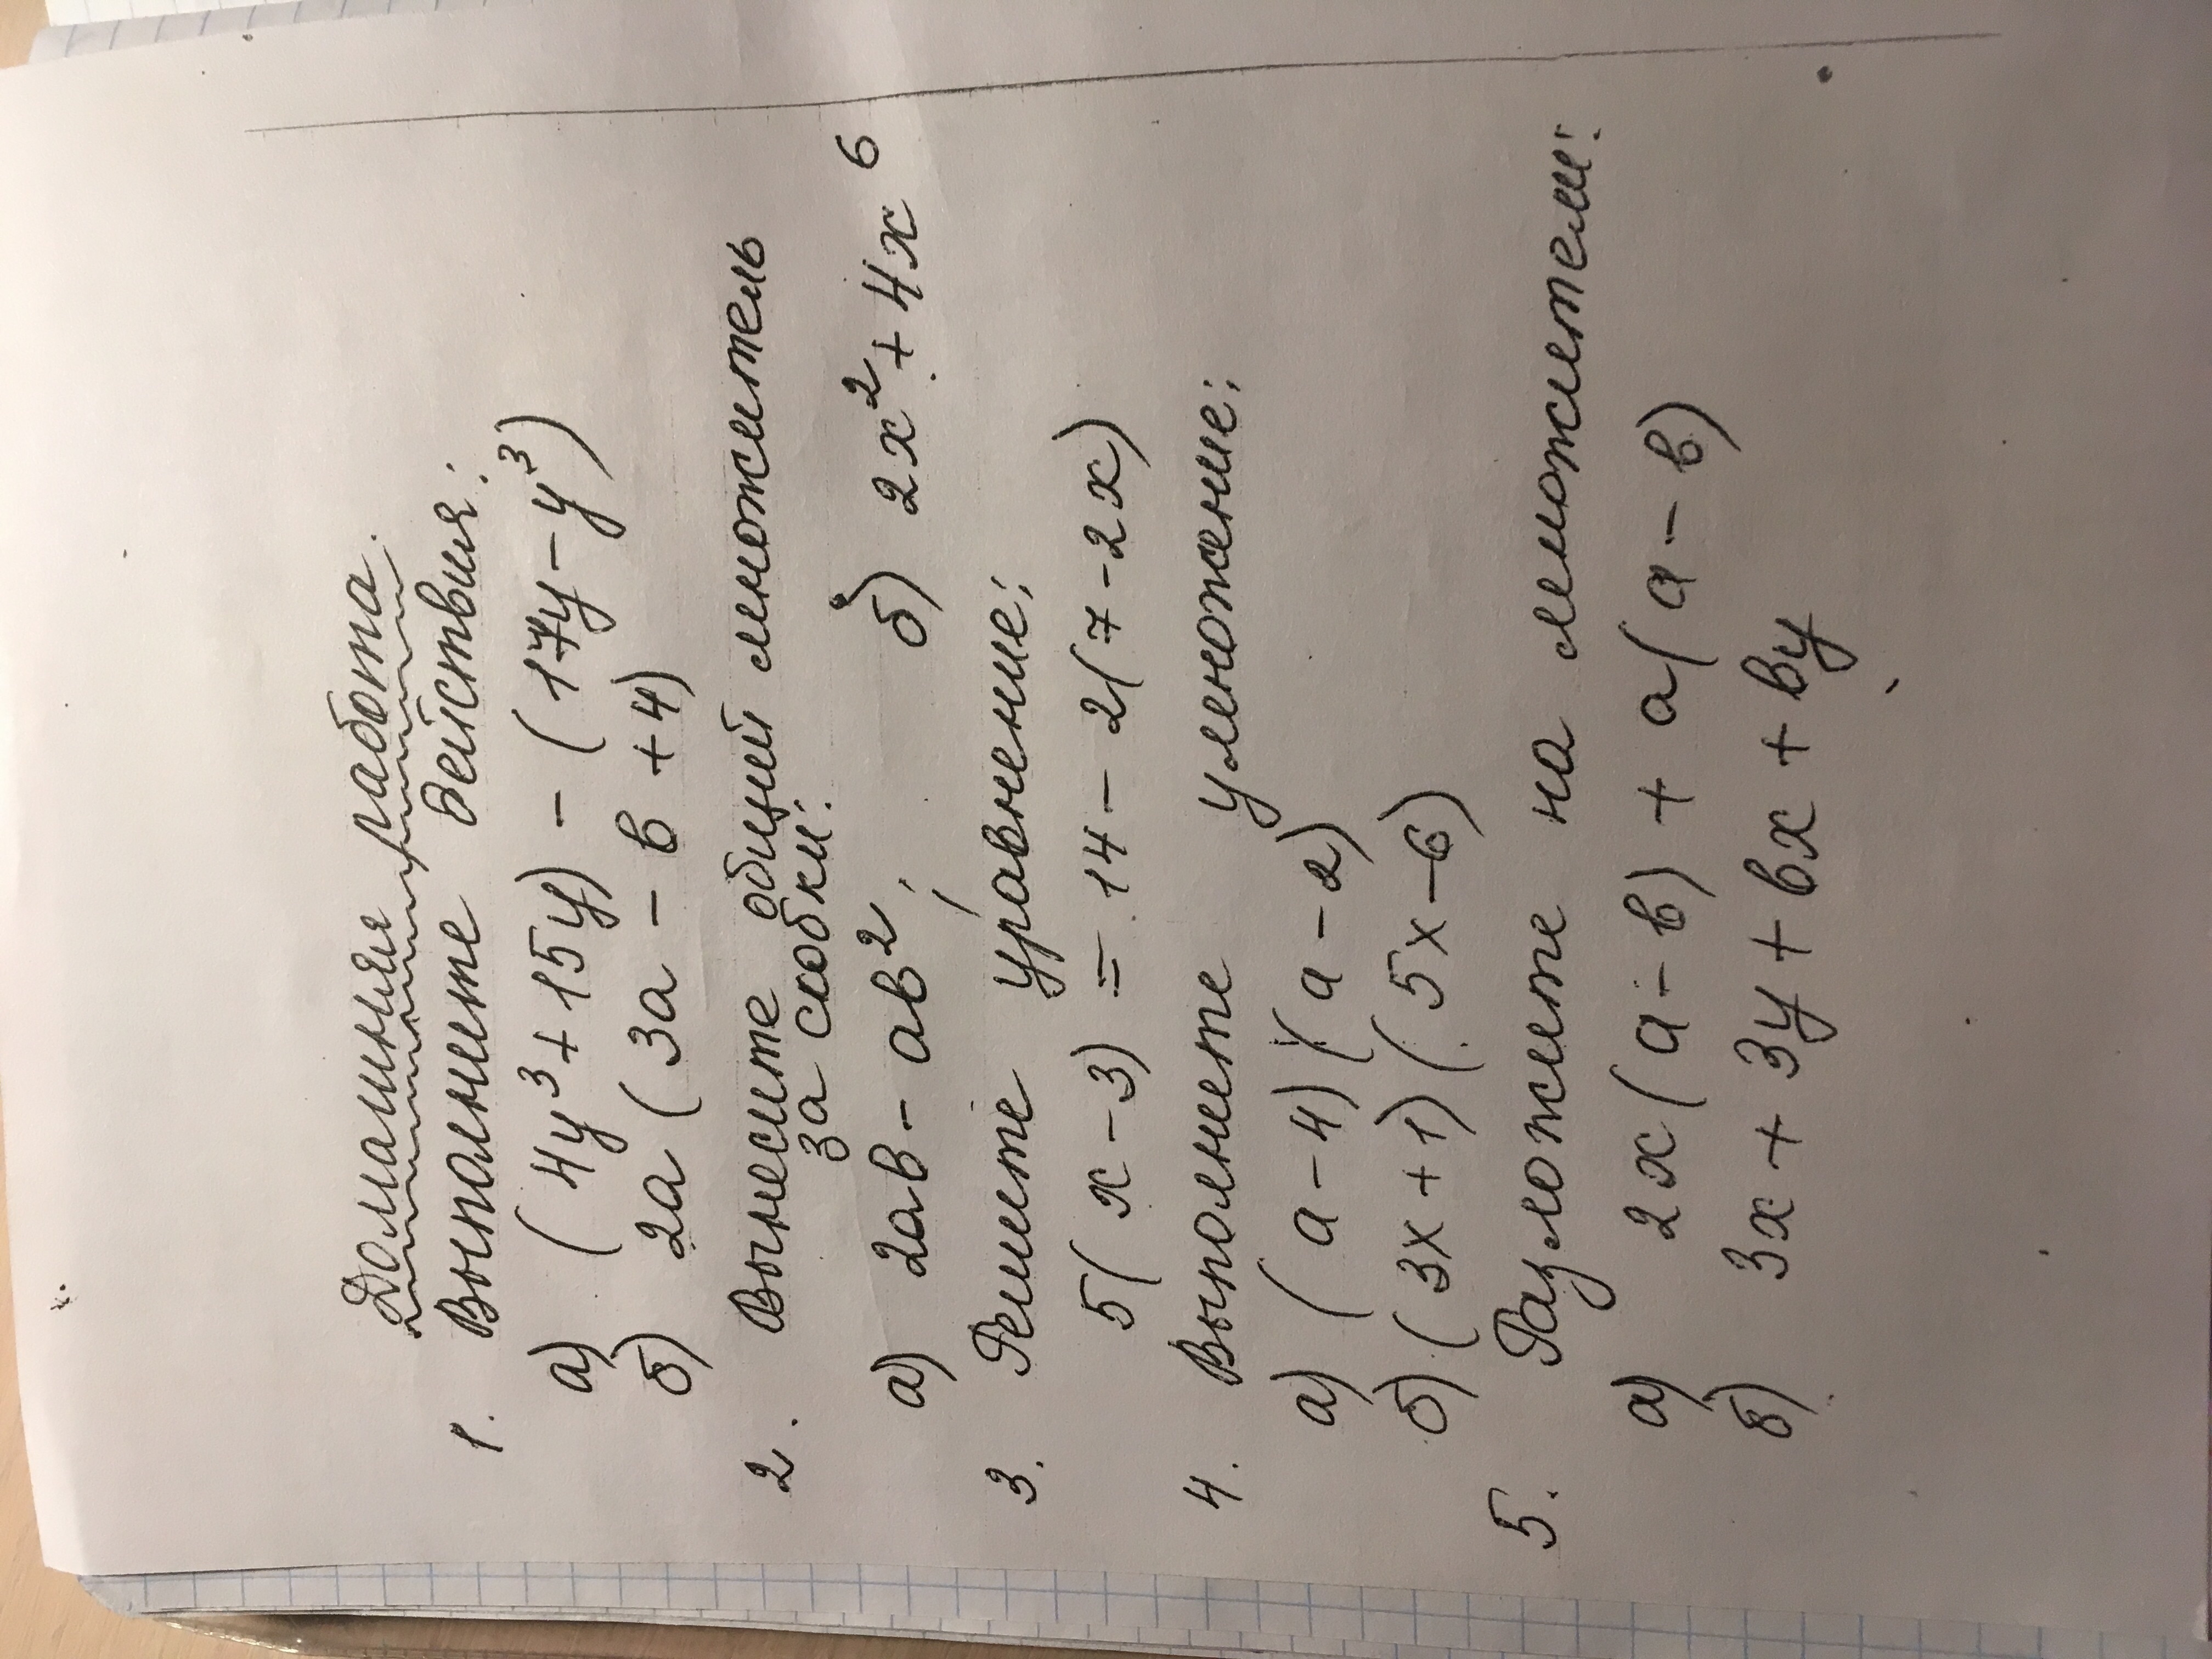 Домашняя работа.
1. Выполните действия:
а) (4y³ + 15y) - (17y - y³)
б) 2a (3a - в + 4)
2. Вынесите общий множитель
за скобки:
а) 2aв - aв²; б) 2x² + 4x⁶
3. Решите уравнение:
5(x - 3) = 14 - 2(7 - 2x)
4. Выполните умножение:
а) (a - 4)(a - 2)
б) (3x + 1)(5x - 6)
5. Разложите на множители:
а) 2x(a - в) + a(a - в)
б) 3x + 3y + вx + вy